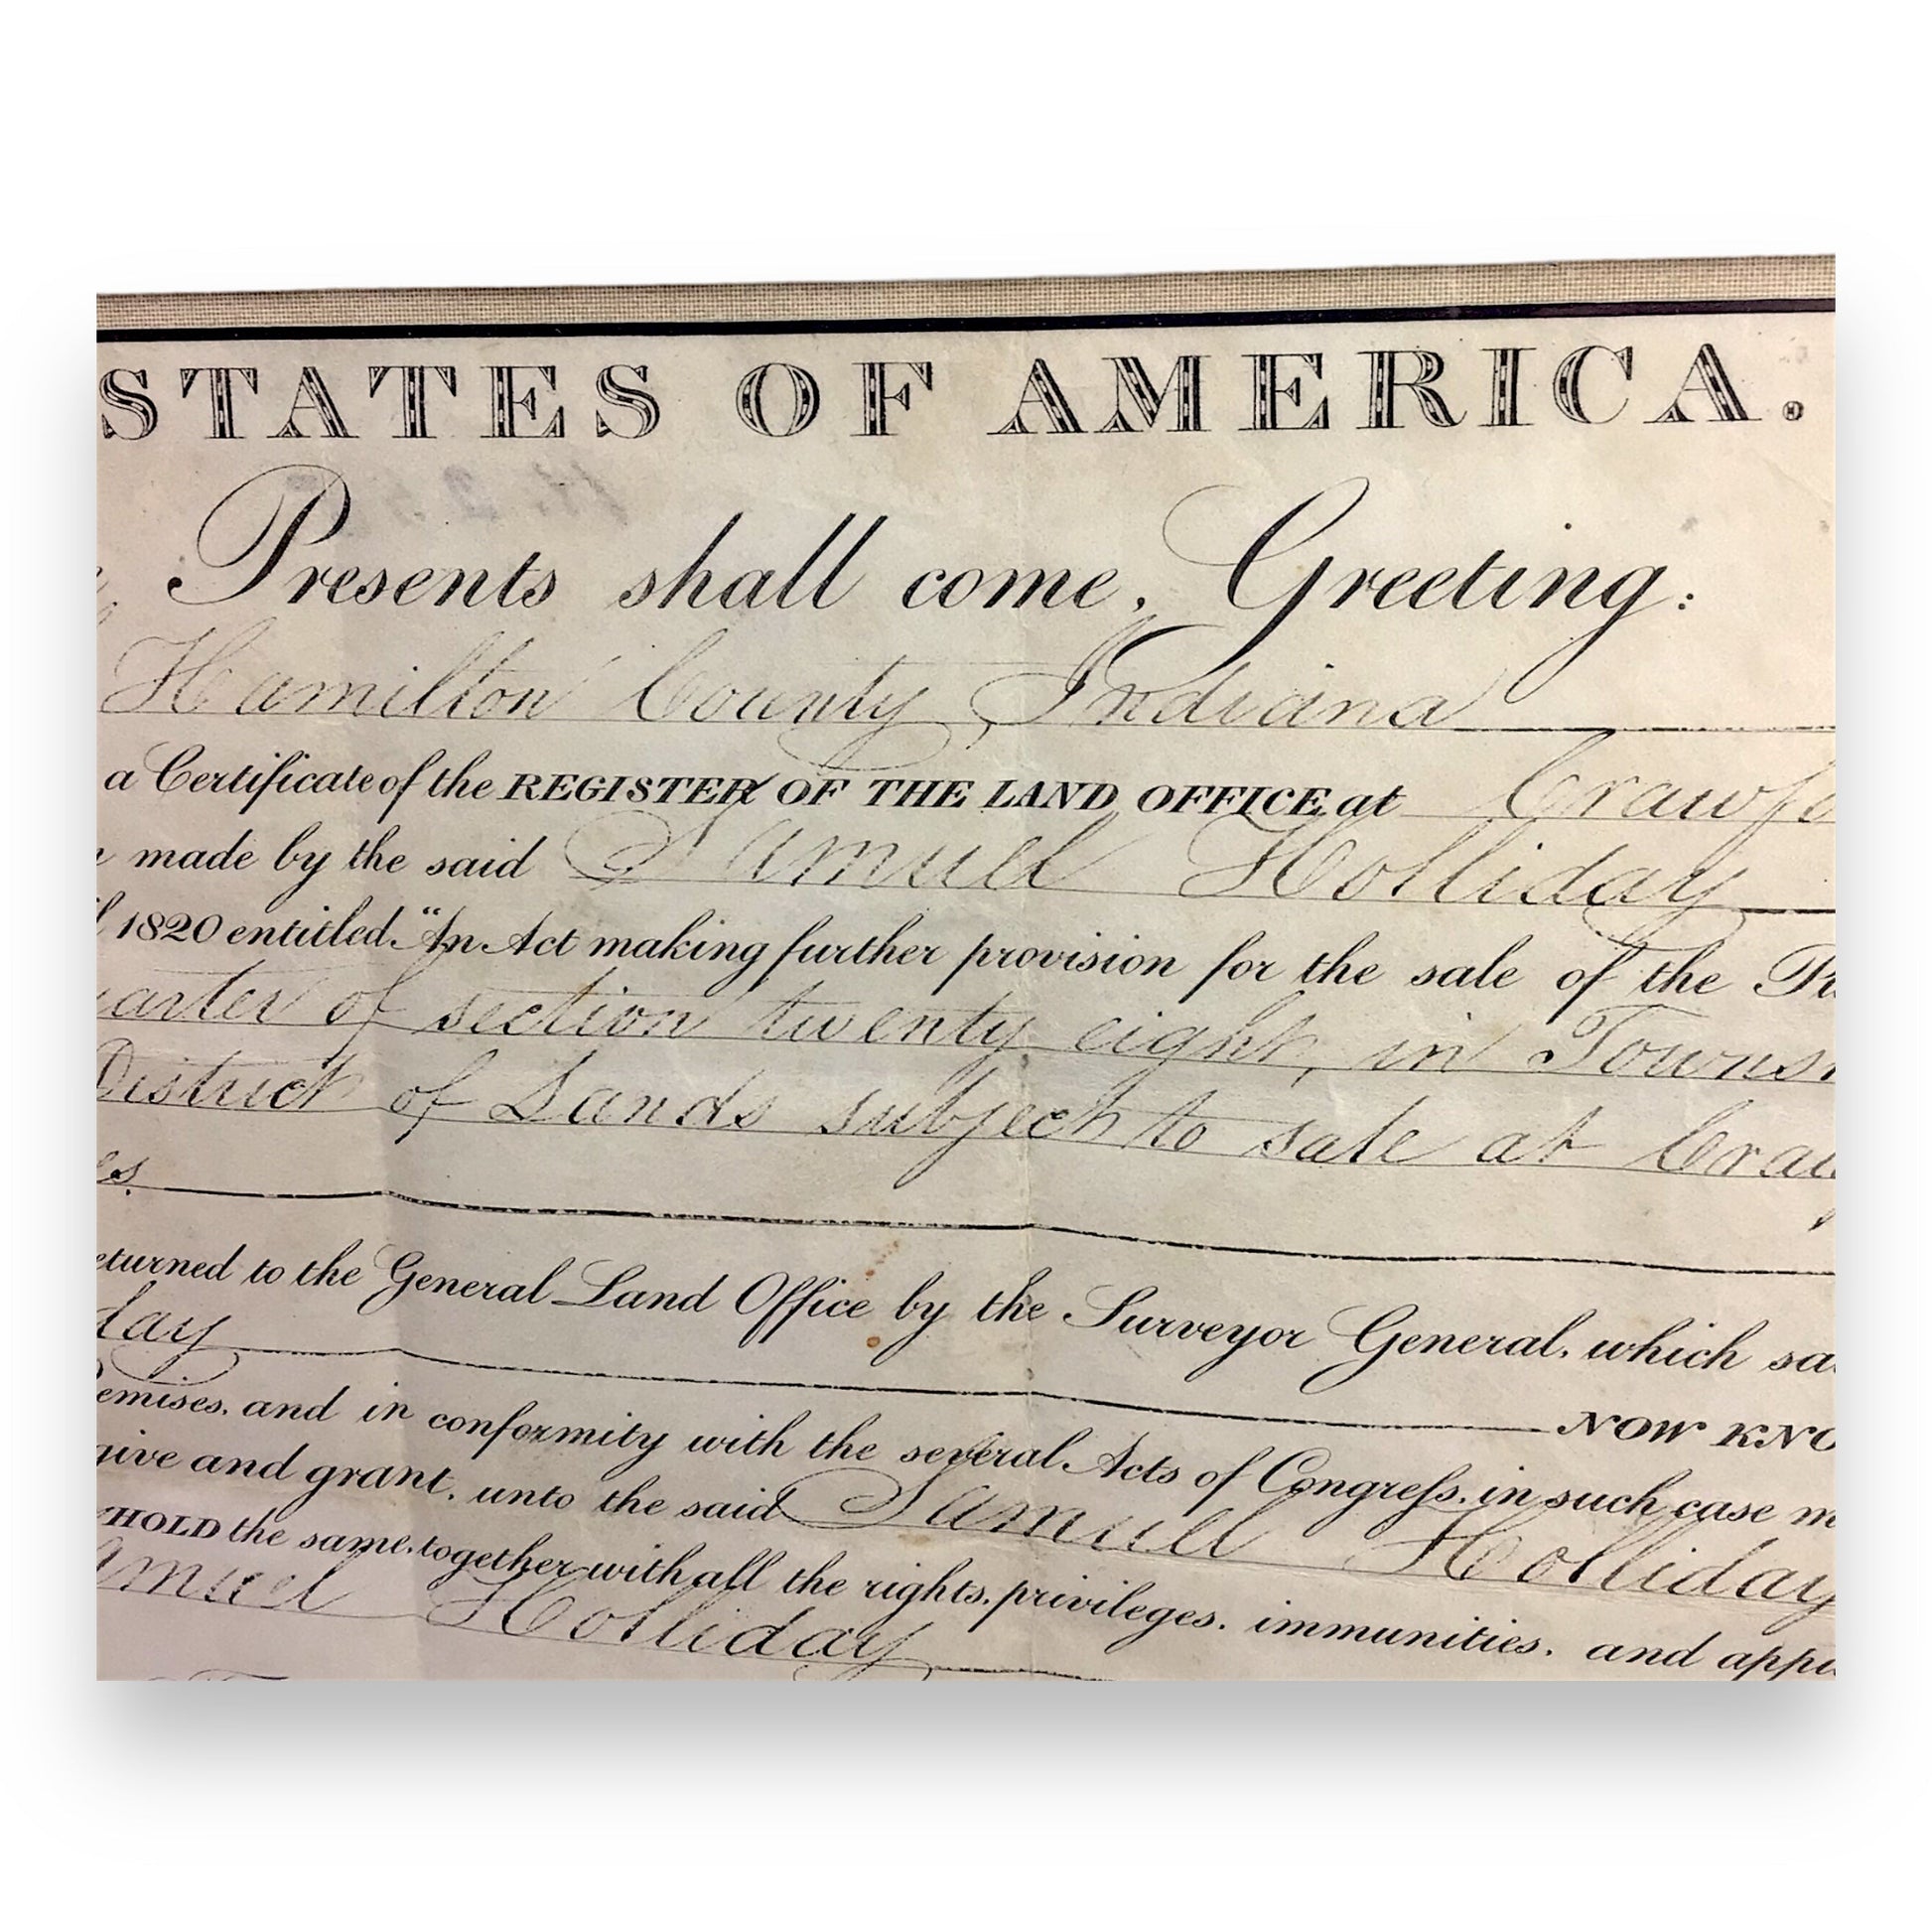 STATES OF AMERICA.
Presents shall come, Greeting:
Hamilton County, Indiana
a Certificate of the REGISTER OF THE LAND OFFICE at Crawfo
made by the said Samuel Holliday
1820 entitled "An Act making further provision for the sale of the Pu
arter of section twenty eight, in Towns
District of Lands subject to sale at Craw
es.
eturned to the General Land Office by the Surveyor General, which sa
day NOW KNO
emises, and in conformity with the several Acts of Congreſs, in such case m
give and grant, unto the said Samuel Holliday
HOLD the same, together with all the rights, privileges, immunities, and appu
amuel Holliday